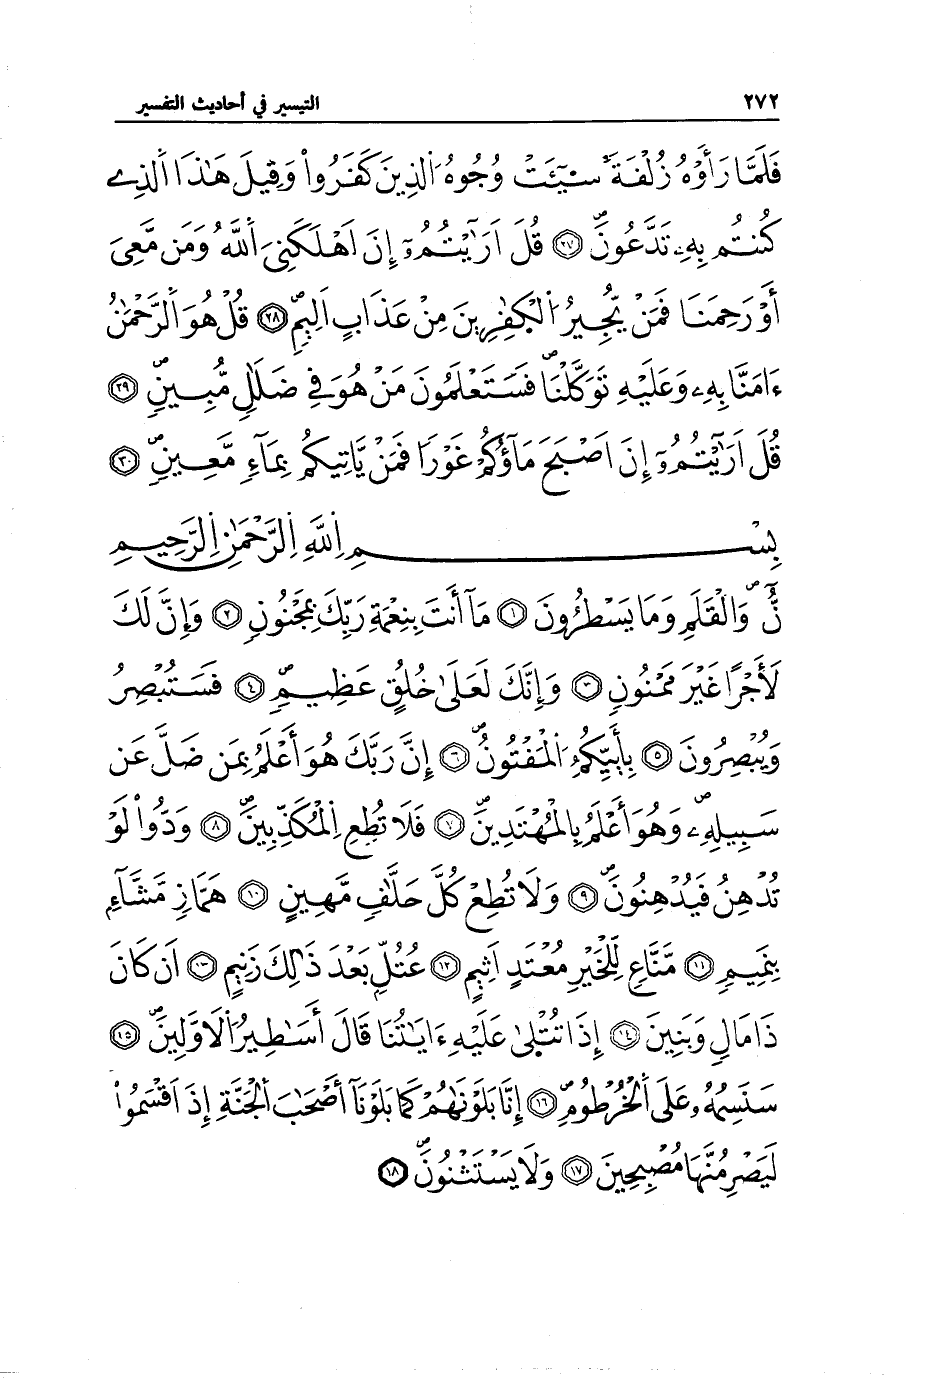 ٢٧٢ التيسير في أحاديث التفسير
فَلَمَّا رَأَوْهُ زُلْفَةً سِيٓـَٔتْ وُجُوهُ اُ۬لذِينَ كَفَرُواْ وَقِيلَ هَٰذَا اَ۬لذِے
كُنتُم بِهِۦ تَدَّعُونَۖ ٢٧ قُلَ اَرَٰٓيْتُمُۥٓ إِنَ اَهْلَكَنِيَ اَ۬للَّهُ وَمَن مَّعِيَ
أَوْ رَحِمَنَا فَمَنْ يُّجِيرُ اُ۬لْكَٰفِرِينَ مِنْ عَذَابٍ اَلِيمٖۖ ٢٨ قُلْ هُوَ اَ۬لرَّحْمَٰنُ
ءَامَنَّا بِهِۦ وَعَلَيْهِ تَوَكَّلْنَاۖ فَسَتَعْلَمُونَ مَنْ هُوَ فِے ضَلَٰلٖ مُّبِينٖۖ ٢٩
قُلَ اَرَٰٓيْتُمُۥٓ إِنَ اَصْبَحَ مَآؤُكُمْ غَوْراٗ فَمَنْ يَّاتِيكُم بِمَآءٖ مَّعِينٖۖ ٣٠
بِسْمِ اِ۬للَّهِ اِ۬لرَّحْمَٰنِ اِ۬لرَّحِيمِ
نُّٓۖ وَالْقَلَمِ وَمَا يَسْطُرُونَ ١ مَآ أَنتَ بِنِعْمَةِ رَبِّكَ بِمَجْنُونٖ ٢ وَإِنَّ لَكَ
لَأَجْراً غَيْرَ مَمْنُونٖ ٣ وَإِنَّكَ لَعَلَىٰ خُلُقٍ عَظِيمٖۖ ٤ فَسَتُبْصِرُ
وَيُبْصِرُونَ ٥ بِأَييِّكُمُ اُ۬لْمَفْتُونُۖ ٦ إِنَّ رَبَّكَ هُوَ أَعْلَمُ بِمَن ضَلَّ عَن
سَبِيلِهِۦۖ وَهُوَ أَعْلَمُ بِالْمُهْتَدِينَۖ ٧ فَلَا تُطِعِ اِ۬لْمُكَذِّبِينَۖ ٨ وَدُّواْ لَوْ
تُدْهِنُ فَيُدْهِنُونَۖ ٩ وَلَا تُطِعْ كُلَّ حَلَّافٖ مَّهِينٍ ١٠ هَمَّازٖ مَّشَّآءِۢ
بِنَمِيمٖ ١١ مَّنَّاعٖ لِّلْخَيْرِ مُعْتَدٍ اَثِيمٍ ١٢ عُتُلِّۢ بَعْدَ ذَٰلِكَ زَنِيمٍ ١٣ اَن كَانَ
ذَا مَالٖ وَبَنِينَ ١٤ إِذَا تُتْلَىٰ عَلَيْهِ ءَايَٰتُنَا قَالَ أَسَٰطِيرُ اُ۬لَاوَّلِينَۖ ١٥
سَنَسِمُهُۥ عَلَى اَ۬لْخُرْطُومِۖ ١٦ إِنَّا بَلَوْنَٰهُمْ كَمَا بَلَوْنَآ أَصْحَٰبَ اَ۬لْجَنَّةِ إِذَ اَقْسَمُواْ
لَيَصْرِمُنَّهَا مُصْبِحِينَ ١٧ وَلَا يَسْتَثْنُونَۖ ١٨